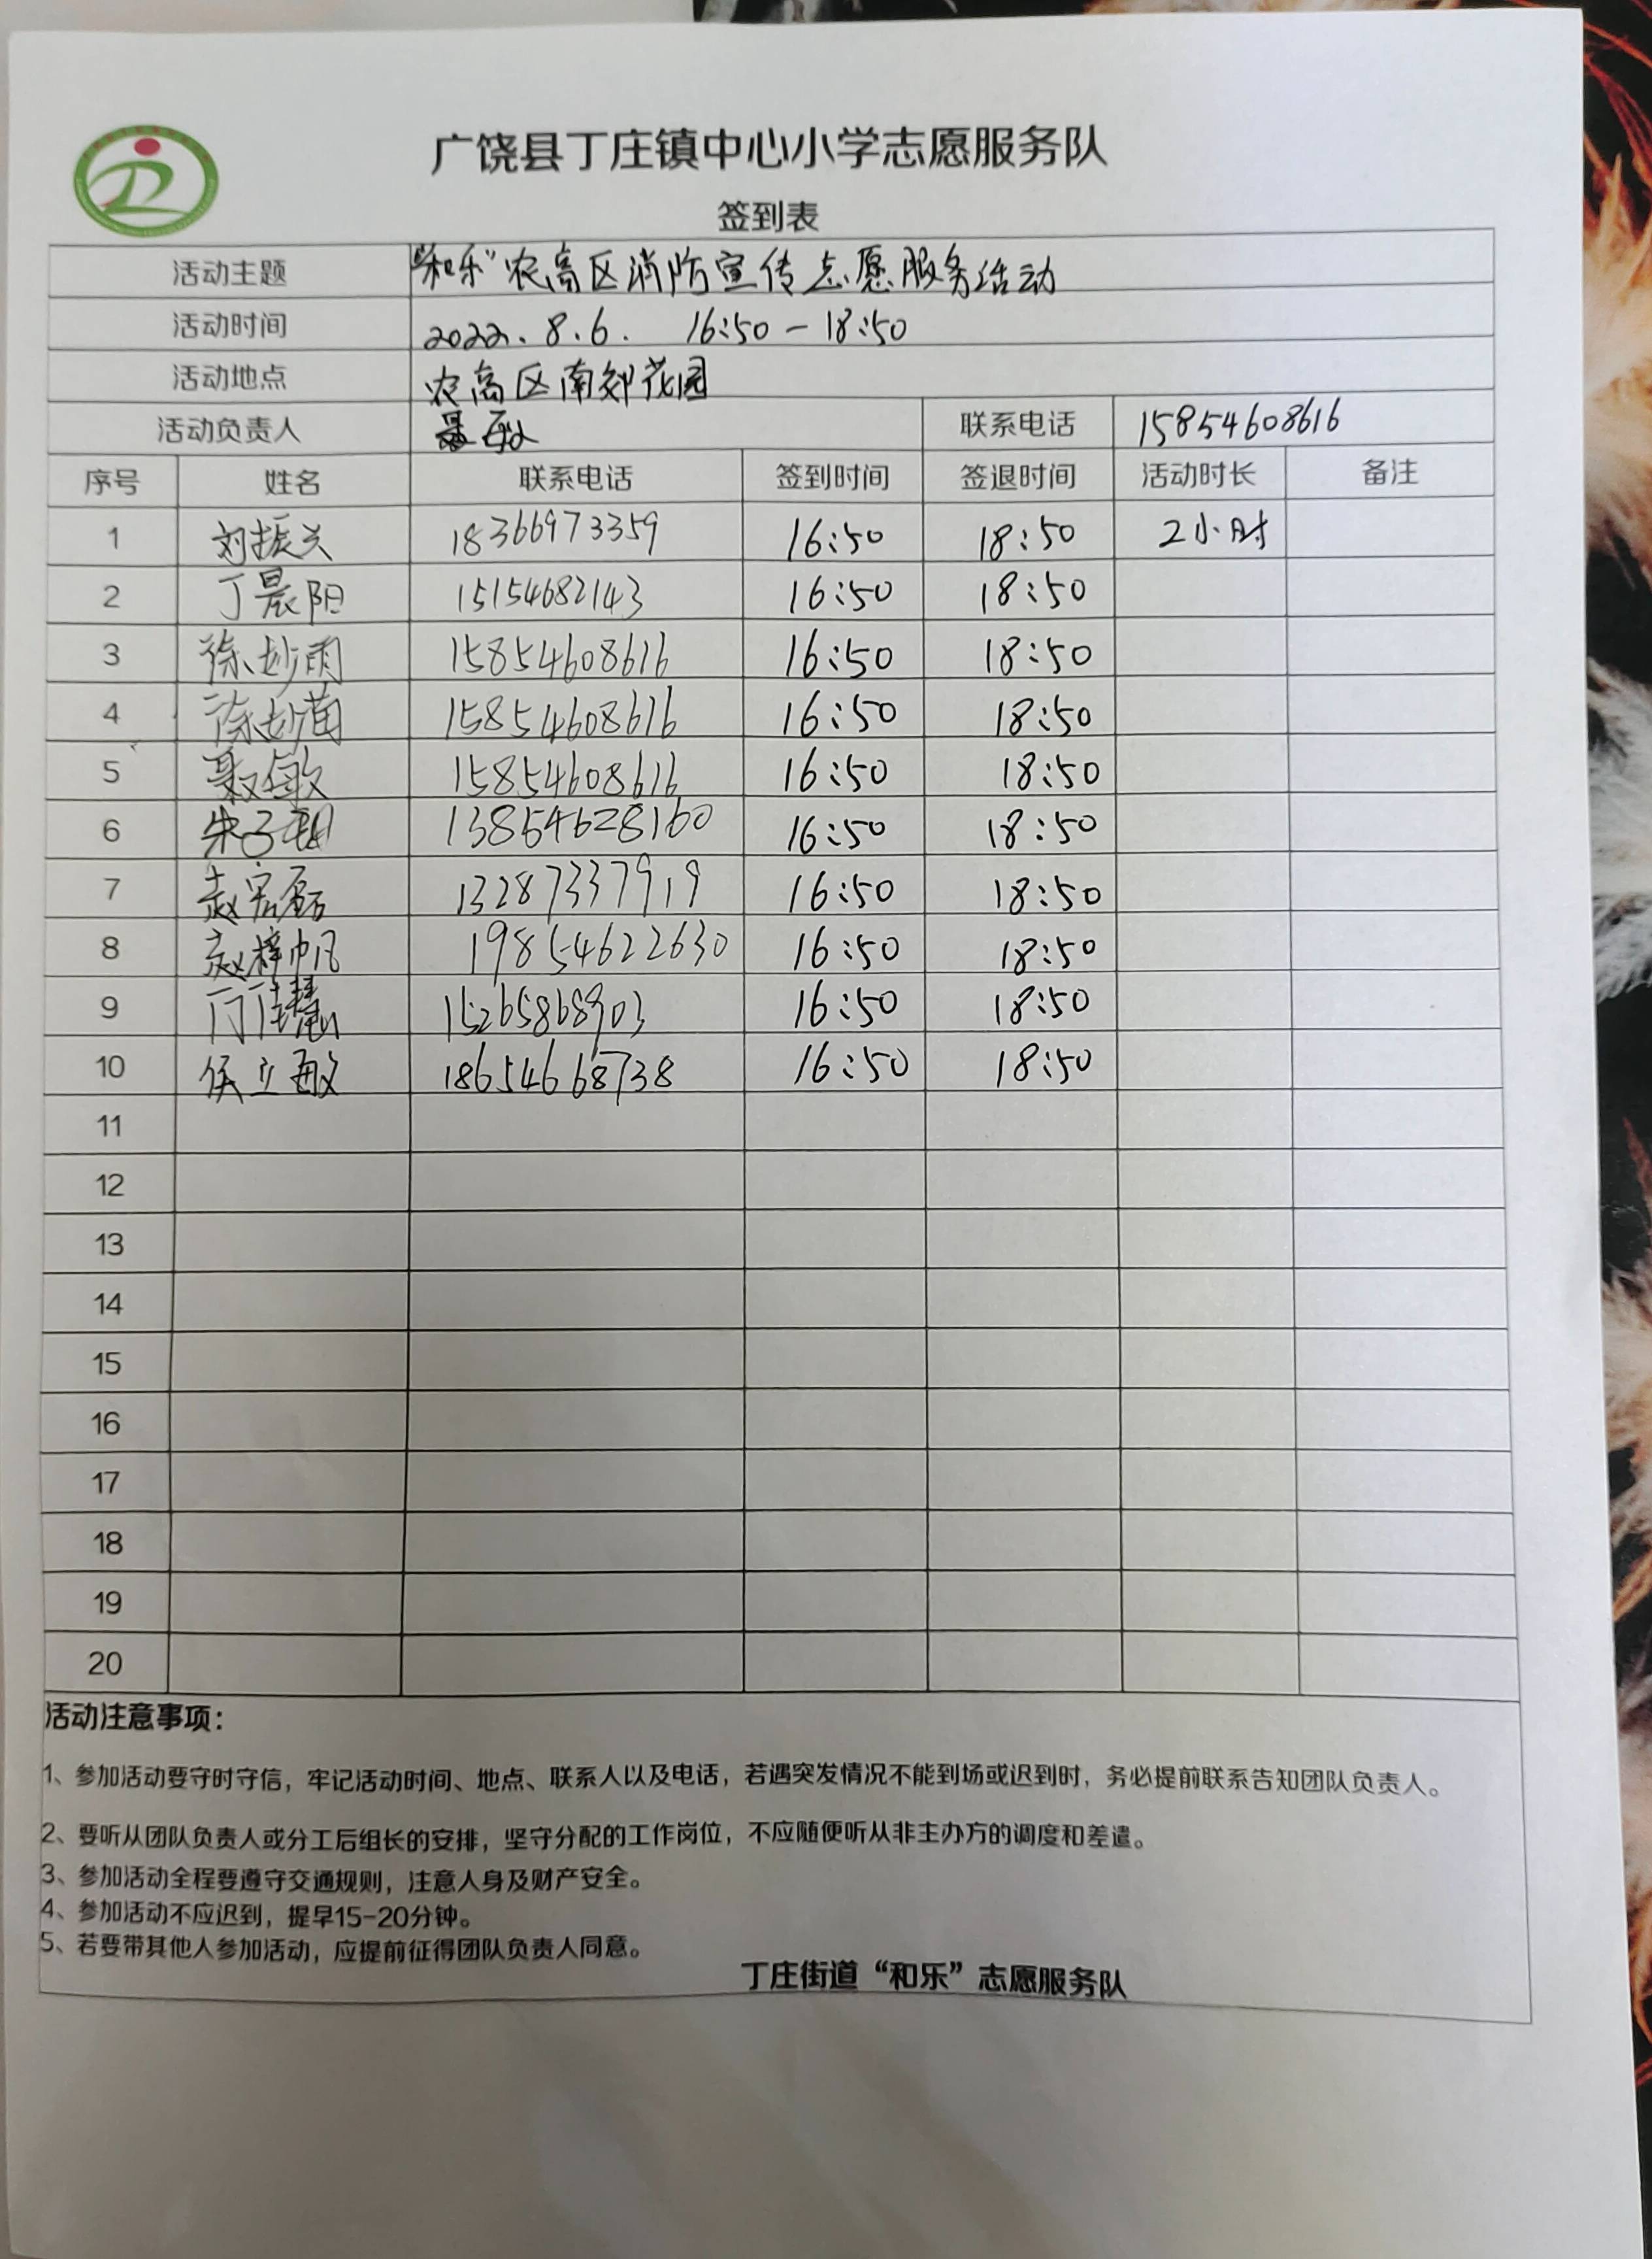 广饶县丁庄镇中心小学志愿服务队
签到表
活动主题 “和乐”农高区消防宣传志愿服务活动
活动时间 2022.8.6. 16:50-18:50
活动地点 农高区南郊花园
活动负责人 聂敏 联系电话 15854608616
序号 姓名 联系电话 签到时间 签退时间 活动时长 备注
1 刘振兴 18366973359 16:50 18:50 2小时
2 丁晨阳 15154682143 16:50 18:50
3 徐妙雨 15854608616 16:50 18:50
4 徐妙菌 15854608616 16:50 18:50
5 聂敏 15854608616 16:50 18:50
6 朱子 13854628160 16:50 18:50
7 赵宏磊 13287337919 16:50 18:50
8 赵梓帆 19854622630 16:50 18:50
9 门佳慧 15265868903 16:50 18:50
10 侯立敏 18654668738 16:50 18:50
11
12
13
14
15
16
17
18
19
20
活动注意事项：
1、参加活动要守时守信，牢记活动时间、地点、联系人以及电话，若遇突发情况不能到场或迟到时，务必提前联系告知团队负责人。
2、要听从团队负责人或分工后组长的安排，坚守分配的工作岗位，不应随便听从非主办方的调度和差遣。
3、参加活动全程要遵守交通规则，注意人身及财产安全。
4、参加活动不应迟到，提早15-20分钟。
5、若要带其他人参加活动，应提前征得团队负责人同意。
丁庄街道“和乐”志愿服务队